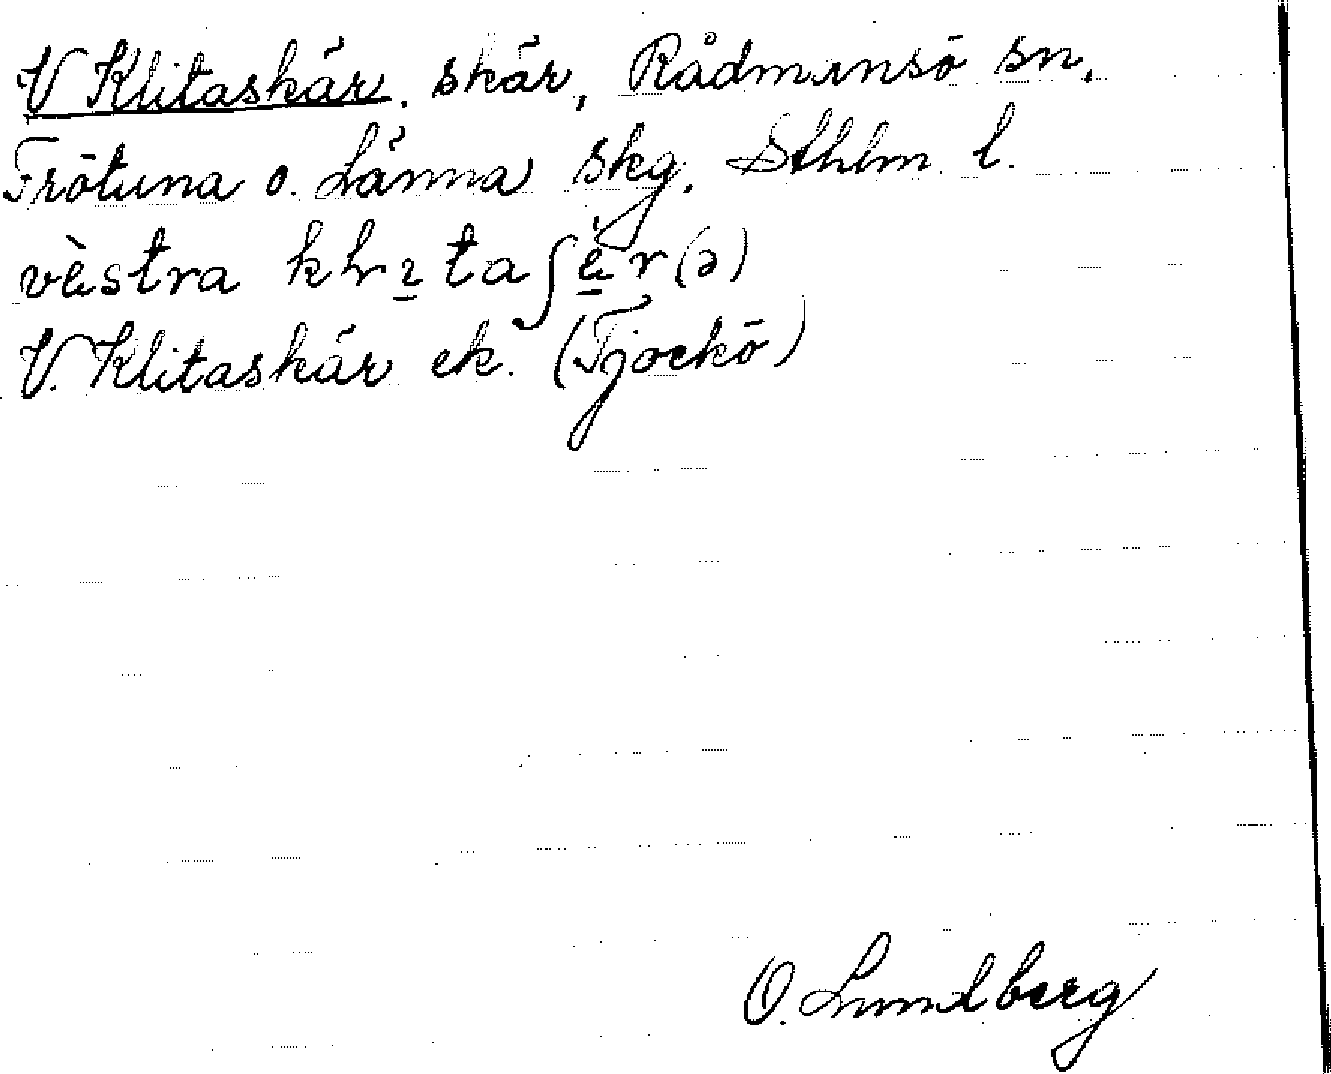 V Klitaskär. skär, Rådmansö sn.
Frötuna o. Länna skg. Sthlm l.
västra
V. Klitaskär ek. (Tjockö)
O. Lundberg